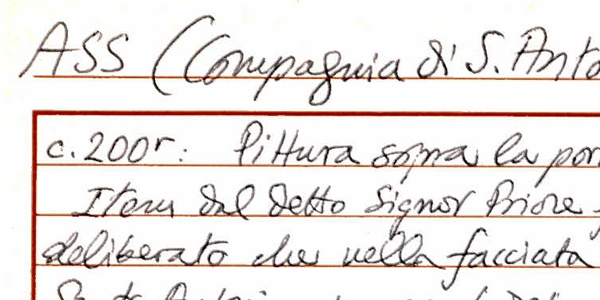 ASS (Compagnia di S. Anto
c.200r: Pittura sopra la por
Item dal detto Signor Priore
deliberato che nella facciata